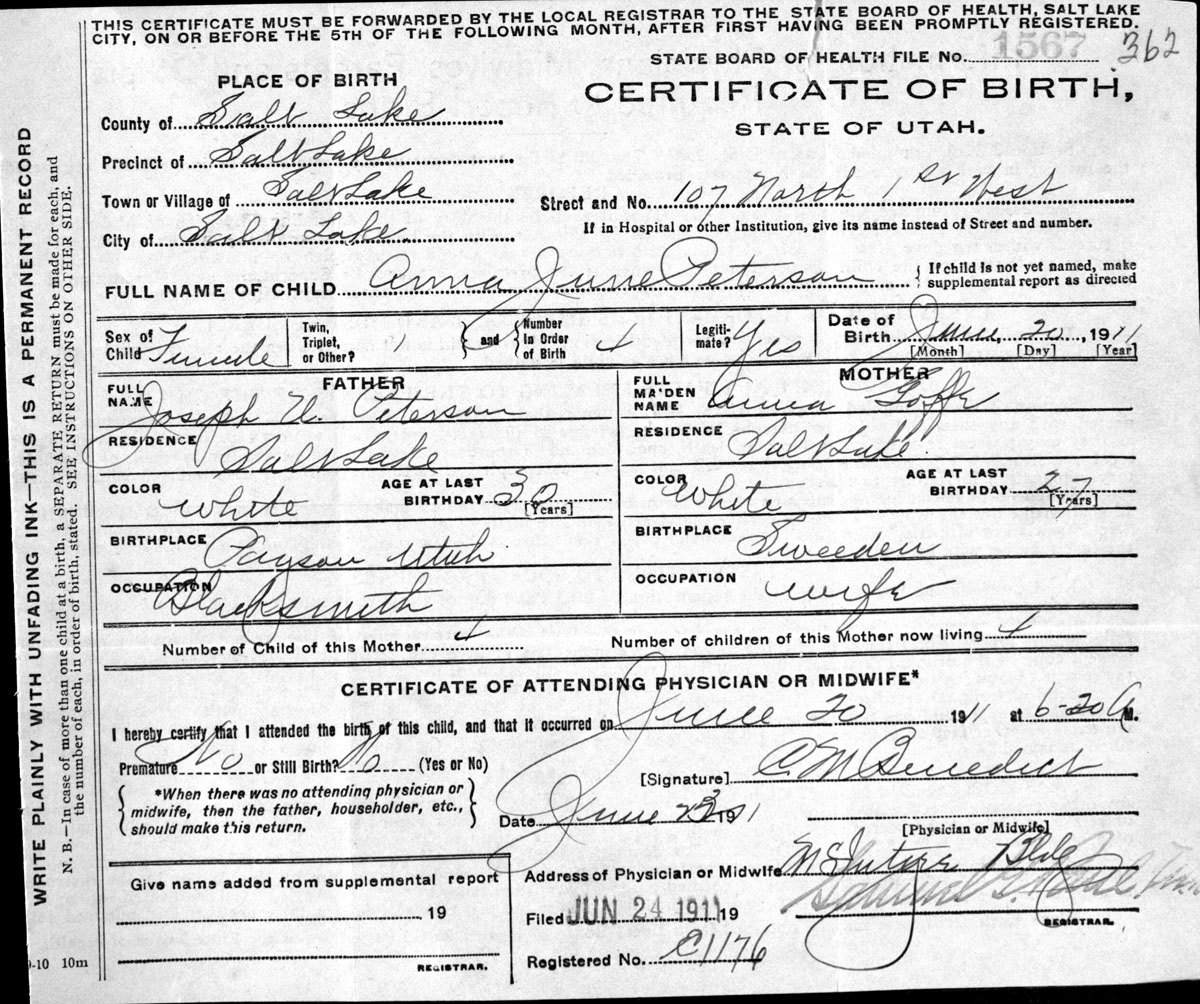 THIS CERTIFICATE MUST BE FORWARDED BY THE LOCAL REGISTRAR TO THE STATE BOARD OF HEALTH, SALT LAKE
CITY, ON OR BEFORE THE 5TH OF THE FOLLOWING MONTH, AFTER FIRST HAVING BEEN PROMPTLY REGISTERED.
STATE BOARD OF HEALTH FILE No. 1567 362
PLACE OF BIRTH
CERTIFICATE OF BIRTH,
STATE OF UTAH.
County of Salt Lake
Precinct of Salt Lake
Town or Village of Salt Lake
Street and No. 107 North 1st West
City of Salt Lake
If in Hospital or other Institution, give its name instead of Street and number.
FULL NAME OF CHILD Anna June Peterson
If child is not yet named, make
supplemental report as directed
Sex of
Child Female
Twin,
Triplet,
or Other?
and
Number
in Order
of Birth 4
Legiti-
mate? Yes
Date of
Birth June 20, 1911
[Month] [Day] [Year]
FATHER
FULL
NAME Joseph U. Peterson
RESIDENCE Salt Lake
COLOR White
AGE AT LAST
BIRTHDAY 30
[Years]
BIRTHPLACE Payson Utah
OCCUPATION Blacksmith
MOTHER
FULL
MAIDEN
NAME Anna Goffe
RESIDENCE Salt Lake
COLOR White
AGE AT LAST
BIRTHDAY 27
[Years]
BIRTHPLACE Sweeden
OCCUPATION wife
Number of Child of this Mother 4
Number of children of this Mother now living 4
CERTIFICATE OF ATTENDING PHYSICIAN OR MIDWIFE*
I hereby certify that I attended the birth of this child, and that it occurred on June 20 1911 at 6-20 A M.
Premature No or Still Birth? No (Yes or No)
[Signature] C M Benedict
*When there was no attending physician or
midwife, then the father, householder, etc.,
should make this return.
Date June 23 1911
[Physician or Midwife]
Address of Physician or Midwife McIntire Bldg
Give name added from supplemental report
19
REGISTRAR.
Filed JUN 24 1911 19
Samuel G.
REGISTRAR.
Registered No. C1176
9-10 10m
WRITE PLAINLY WITH UNFADING INK—THIS IS A PERMANENT RECORD
N. B.—In case of more than one child at a birth, a SEPARATE RETURN must be made for each, and
the number of each, in order of birth, stated. SEE INSTRUCTIONS ON OTHER SIDE.